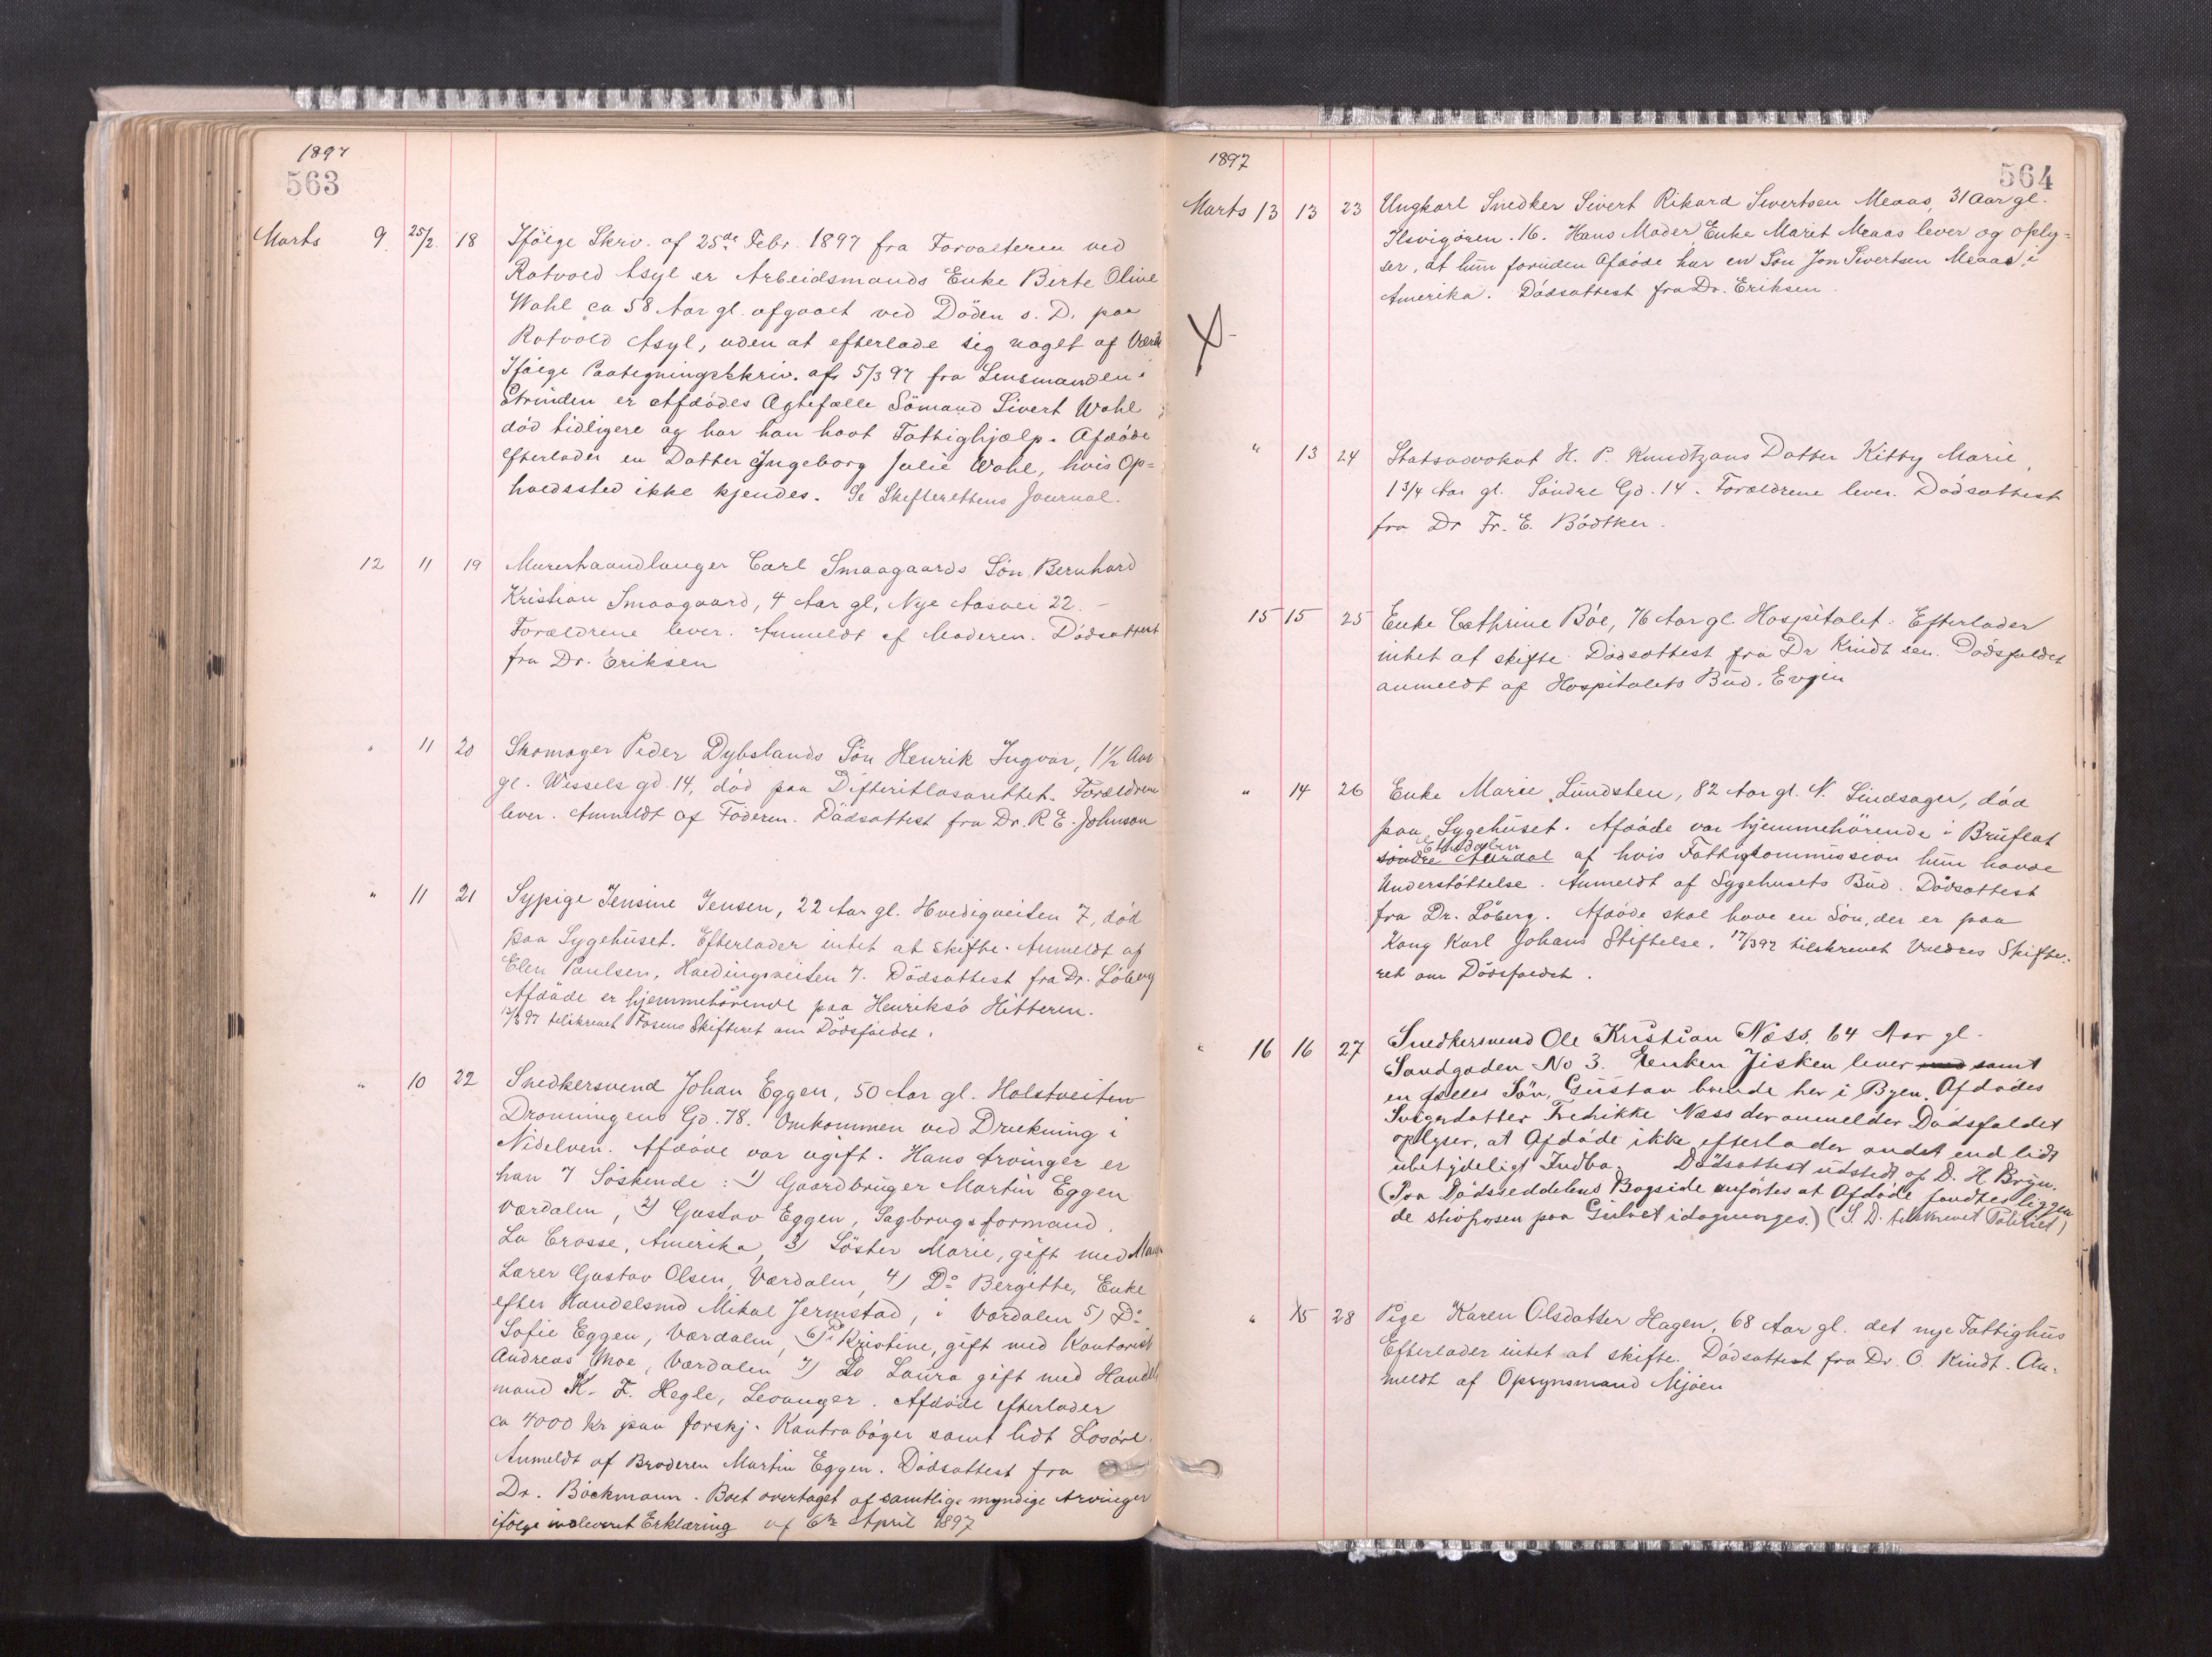 1897
563
Marts 9. 25/2. 18 Ifölge Skriv. af 25de Febr. 1897 fra Forvalteren ved
Rotvold Asyl er Arbeidsmands Enke Berte Oline
Wahl ca 58 Aar gl. afgaaet ved Döden s. D. paa
Rotvold Asyl, uden at efterlade sig noget af Værdi
Ifölge Paategningsskriv. af 5/3 97 fra Lensmanden i
Strinden er Afdödes Ægtefælle Sömand Sivert Wahl
död tidligere og har han havt Fattighjælp. Afdöde
efterlader en Datter Ingeborg Julie Wahl, hvis Op=
holdssted ikke kjendes. Se Skifterettens Journal.
12 11 19 Murerhaandlanger Carl Smaagaards Sön Bernhard
Kristian Smaagaard, 4 Aar gl, Nye Aasvei 22. –
Forældrene lever. Anmeldt af Moderen. Dödsattest
fra Dr. Eriksen
" 11 20 Skomager Peder Dybslands Sön Henrik Ingvar, 1 1/2 Aar
gl. Wessels gd. 14, död paa Difteritlasarettet. Forældrene
lever. Anmeldt af Faderen. Dödsattest fra Dr. R. E. Johnson
" 11 21 Sypige Jensine Jensen, 22 Aar gl. Hvedigveiten 7, död
paa Sygehuset. Efterlader intet at skifte. Anmeldt af
Elen Paulsen, Hvedingsveiten 7. Dödsattest fra Dr. Löberg
Afdöde er hjemmehörende paa Henriksö Hitteren.
13/3 97 tilskrevet Fosens Skifteret om Dödsfaldet.
" 10 22 Snedkersvend Johan Eggen, 50 Aar gl. Holstveiten
Dronningens Gd. 78. Omkommen ved Drukning i
Nidelven. Afdöde var ugift. Hans Arvinger er
han 7 Söskende: 1) Gaardbruger Martin Eggen
Værdalen, 2) Gustav Eggen, Sagbrugsformand,
La Crosse, Amerika, 3) Söster Marie, gift med
Lærer Gustav Olsen, Værdalen, 4) Do Bergitte, Enke
efter Handelsmd Mikal Jermstad, i Værdalen 5) Do
Sofie Eggen, Værdalen, 6) Do Kristine, gift med Kontorist
Andreas Moe, Værdalen 7) Do Laura gift med Handels
mand K. F. Hegle, Levanger. Afdöde efterlader
ca 4000 kr paa forskj. Kontraböger samt lidt Lösöre.
Anmeldt af Broderen Martin Eggen. Dödsattest fra
Dr. Böckmann. Boet overtaget af samtlige myndige Arvinger
ifölge indleveret Erklæring af 6te April 1897
1897
564
Marts 13 13 23 Ungkarl Snedker Sivert Rikard Sivertsen Meaas, 31 Aar gl.
Ilsvigören. 16. Hans Moder, Enke Marit Meaas lever og oply=
ser, at hun foruden Afdöde har en Sön Jon Sivertsen Meaas, i
Amerika. Dödsattest fra Dr. Eriksen.
" 13 24 Statsadvokat H. P. Knudtzons Datter Kitty Marie,
1 3/4 Aar gl. Söndre Gd. 14. Forældrene lever. Dödsattest
fra Dr Fr. E. Bödtker.
15 15 25 Enke Cathrine Böe, 76 Aar gl. Hospitalet. Efterlader
intet at skifte. Dödsattest fra Dr Kindt sen. Dödsfaldet
anmeldt af Hospitalets Bud. Evjen
" 14 26 Enke Marie Lundsten, 82 Aar gl. N. Lindsager, död
paa Sygehuset. Afdöde var hjemmehörende i Bruflat
Etnedalen
söndre Aurdal af hvis Fattigkommission hun havde
Understöttelse. Anmeldt af Sygehusets Bud. Dödsattest
fra Dr. Löberg. Afdöde skal have en Sön, der er paa
Kong Karl Johans Stiftelse. 17/3 97 tilskrevet Valdres Skifte-
ret om Dödsfaldet.
" 16 16 27 Snedkersvend Ole Kristian Næss, 64 Aar gl.
Sandgaden No 3. Enken Jisken lever med samt
en fælles Sön, Gustav boende her i Byen. Afdödes
Svigerdatter Fredrikke Næss der anmelder Dödsfaldet
oplyser, at Afdöde ikke efterlader andet end lidt
ubetydeligt Indbo. Dödsattest udstedt af D. H. Bryn.
(Paa Dödsseddelens Bagside anförtes at Afdöde fandtes liggen
de stivfrosen paa Gulvet idagmorges.) (S. D. tilskrevet Politiet)
" 15 28 Pige Karen Olsdatter Hagen, 68 Aar gl. det nye Fattighus
Efterlader intet at skifte. Dödsattest fra Dr. O. Kindt. An-
meldt af Opsynsmand Mjöen